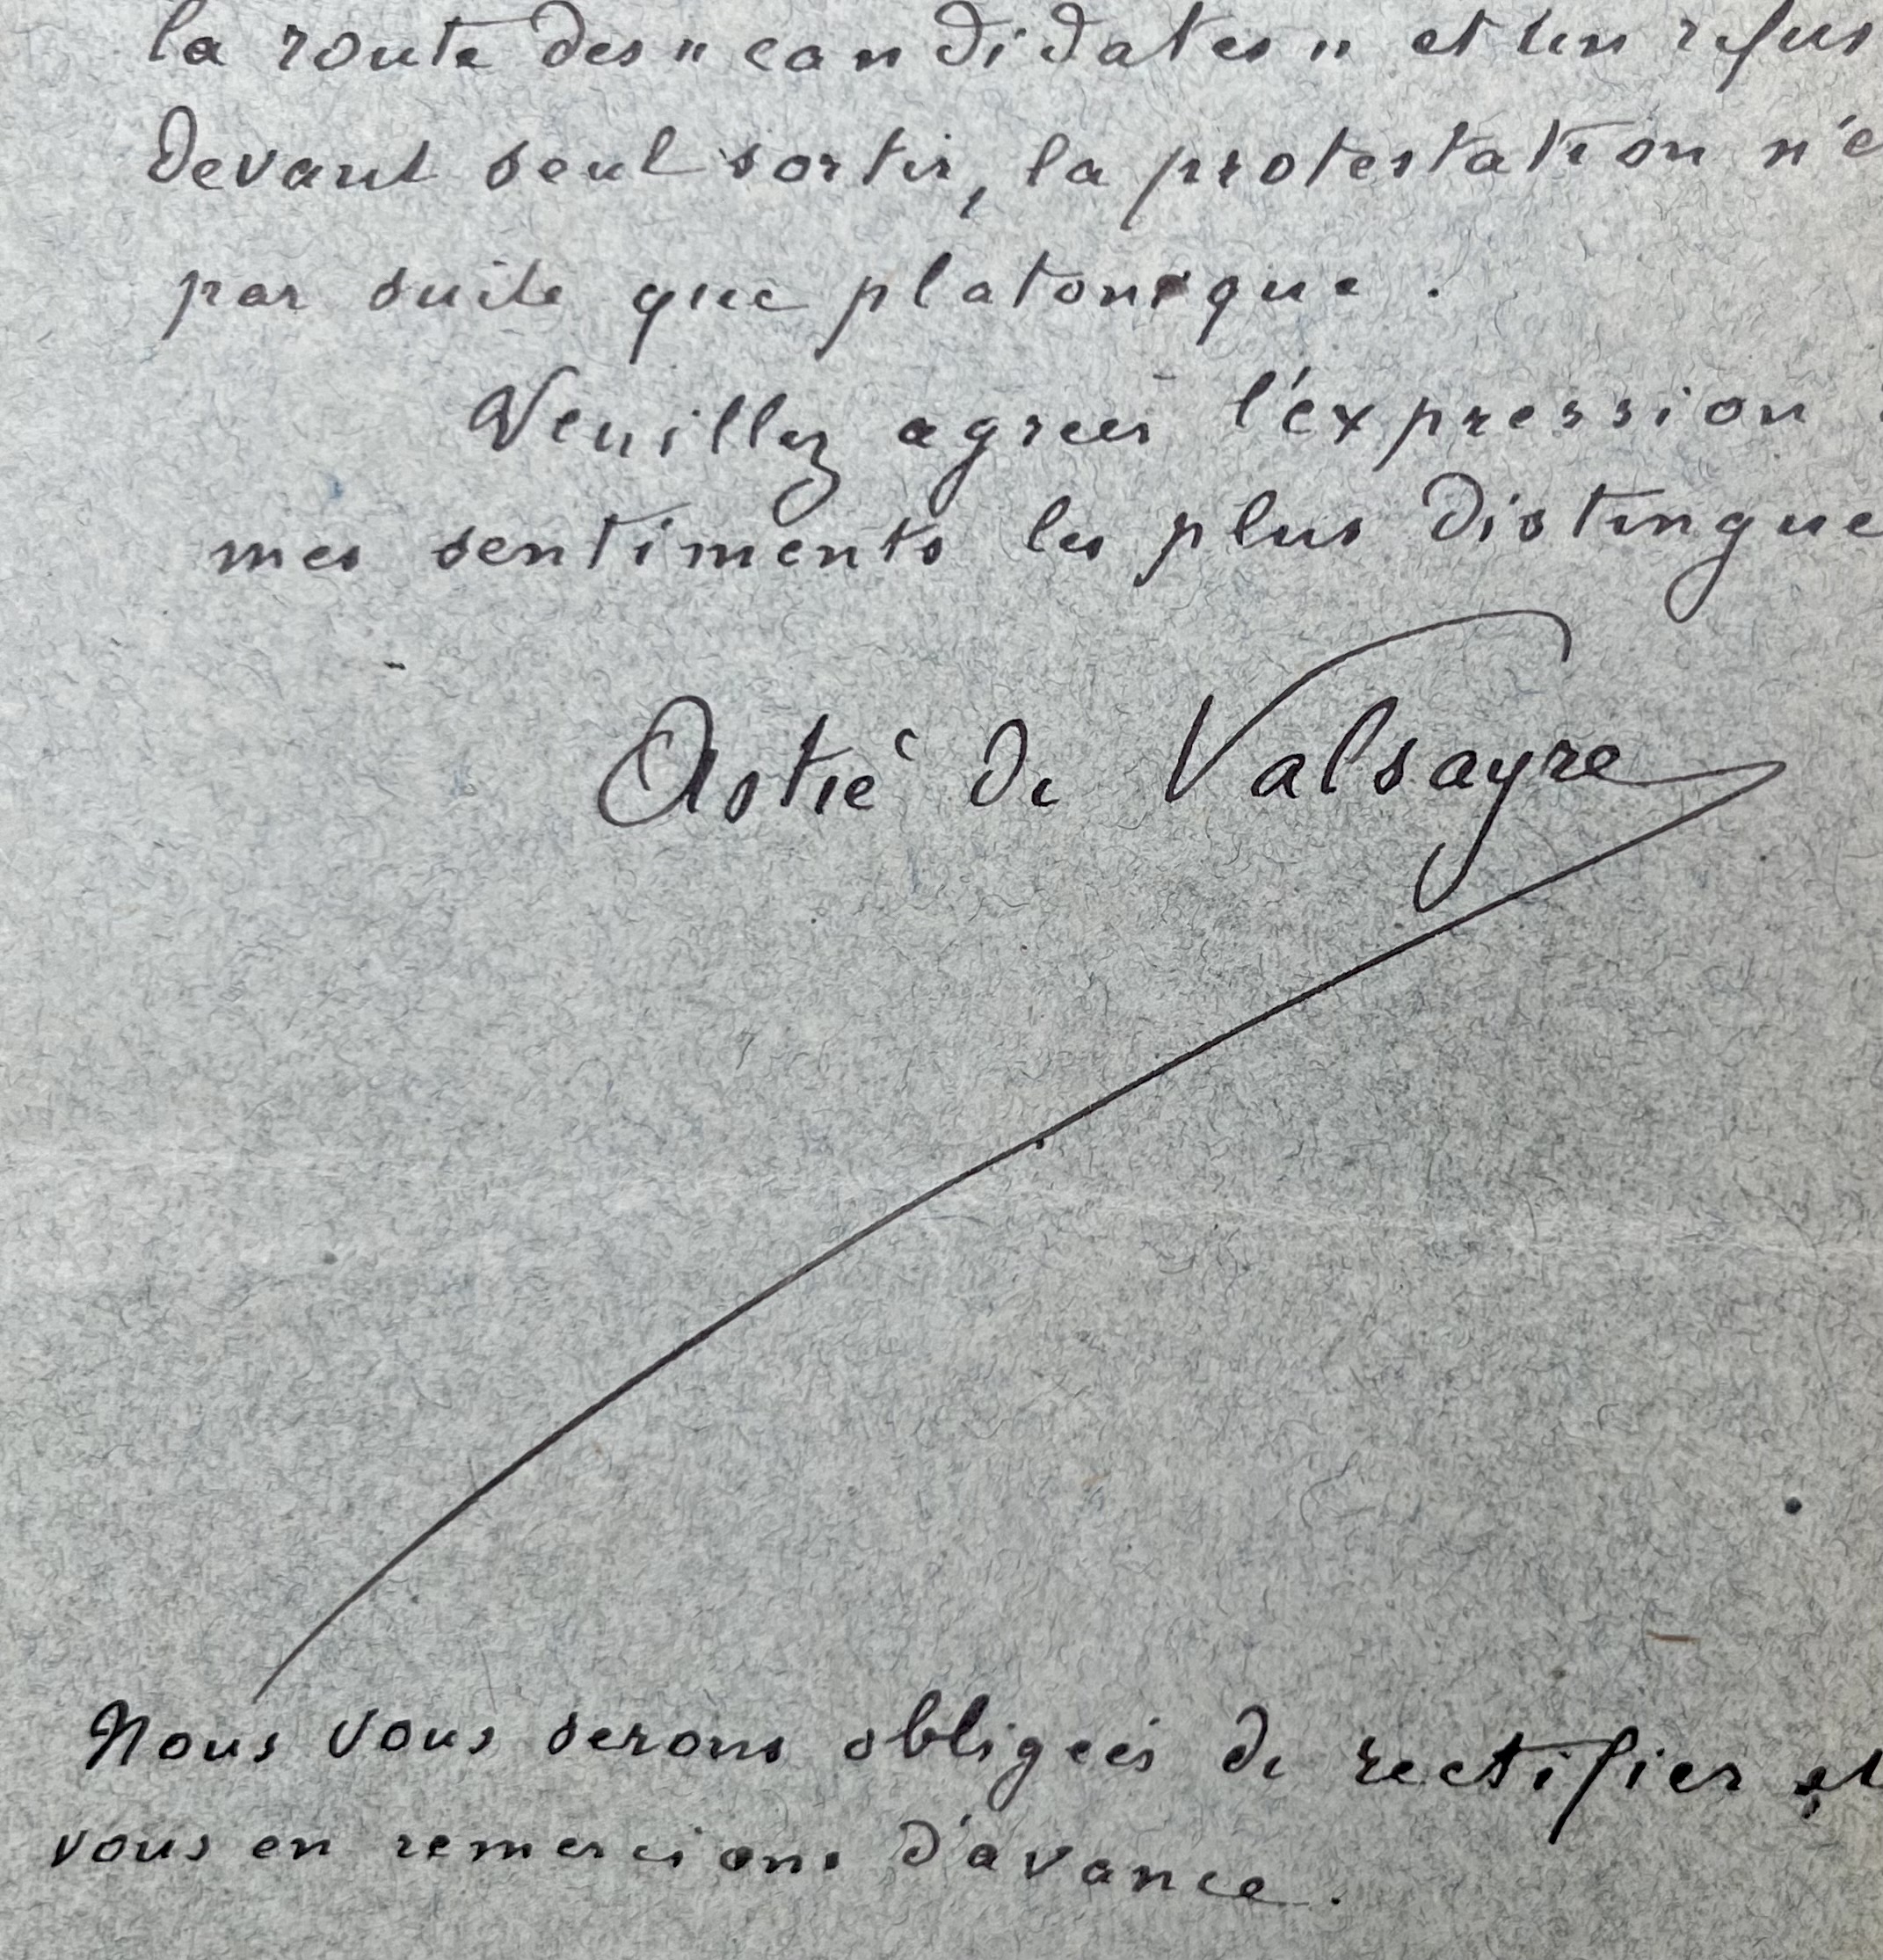 la route des " candidates " et un refus
devant seul sortir, la protestation n'e
par suite que platonique .
Veuillez agréer l'expression
mes sentiments les plus distingue
Astié de Valsayre
Nous vous serons obligées de rectifier et
vous en remercions d'avance .